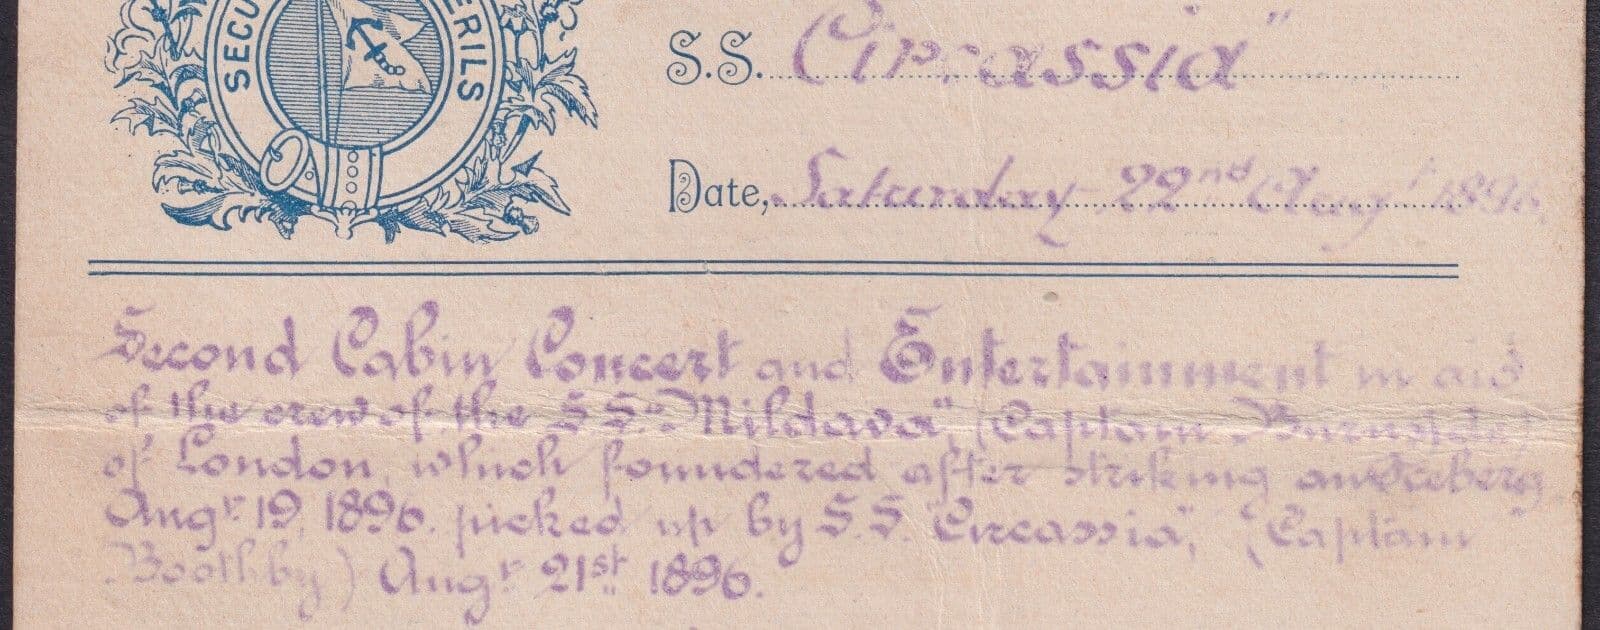 SECU ERILS
S.S. Circassia"
Date, Saturday 22nd Augt 1896.
Second Cabin Concert and Entertainment in aid
of the crew of the S.S. "Mildava", (Captain
of London, which foundered after striking an Iceberg
Augt 19, 1896. picked up by S.S. "Circassia", (Captain
Boothby) Augt 21st 1896.